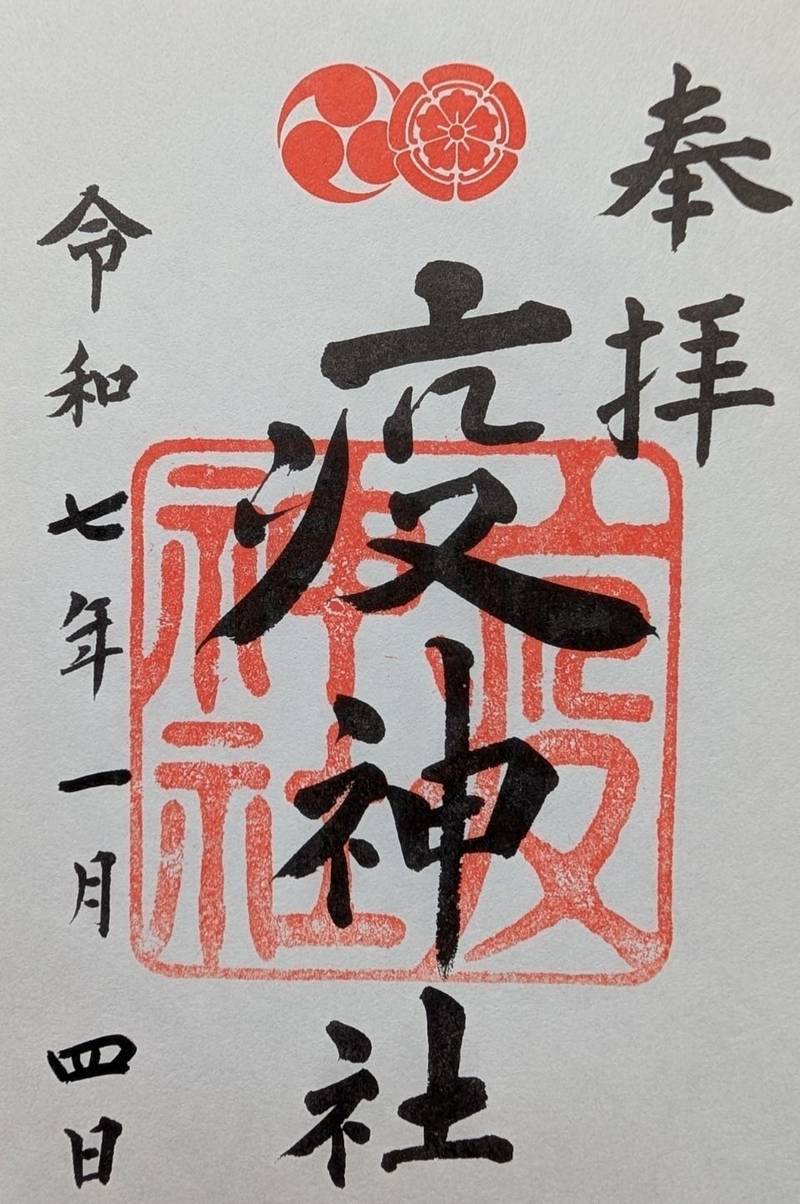 奉拝
疫神社
疫神社
令和七年一月四日